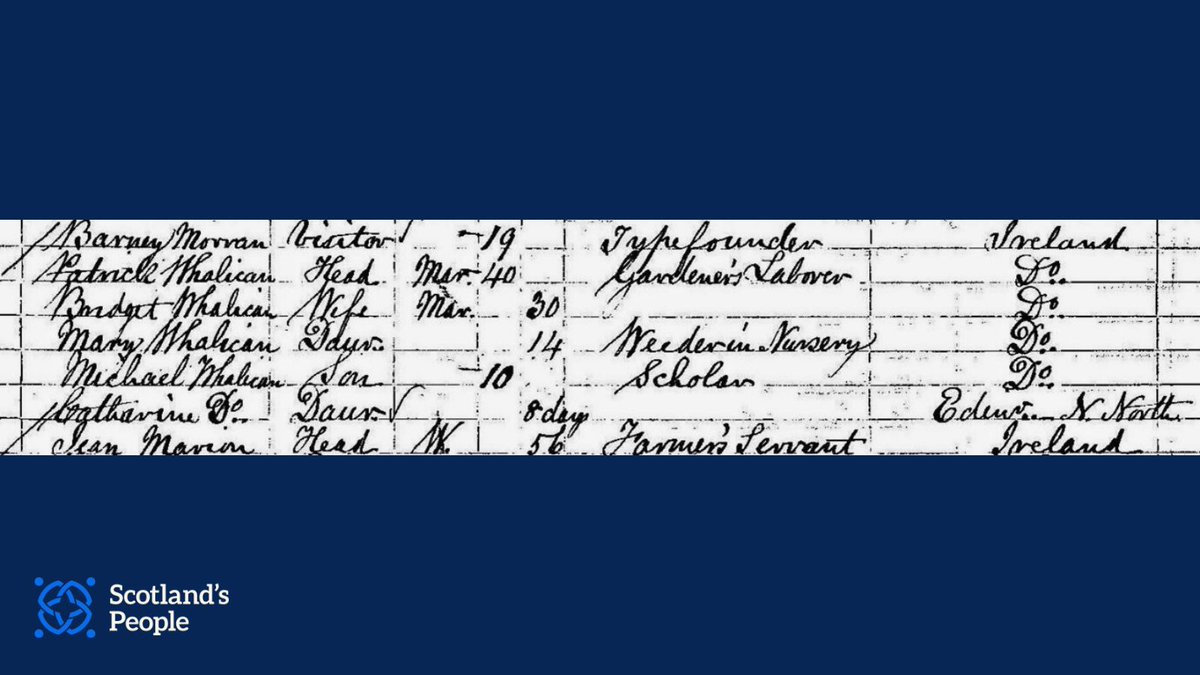 Barney Morran Visitor 19 Typefounder Ireland
Patrick Whalican Head Mar. 40 Gardener's Laborer Do.
Bridget Whalican Wife Mar. 30 Do.
Mary Whalican Daur. 14 Weeder in Nursery Do.
Michael Whalican Son 10 Scholar Do.
Catharine Do. Daur. 8 day
Jean Marion Head W. 56 Farmer's Servant Ireland
Scotland's
People